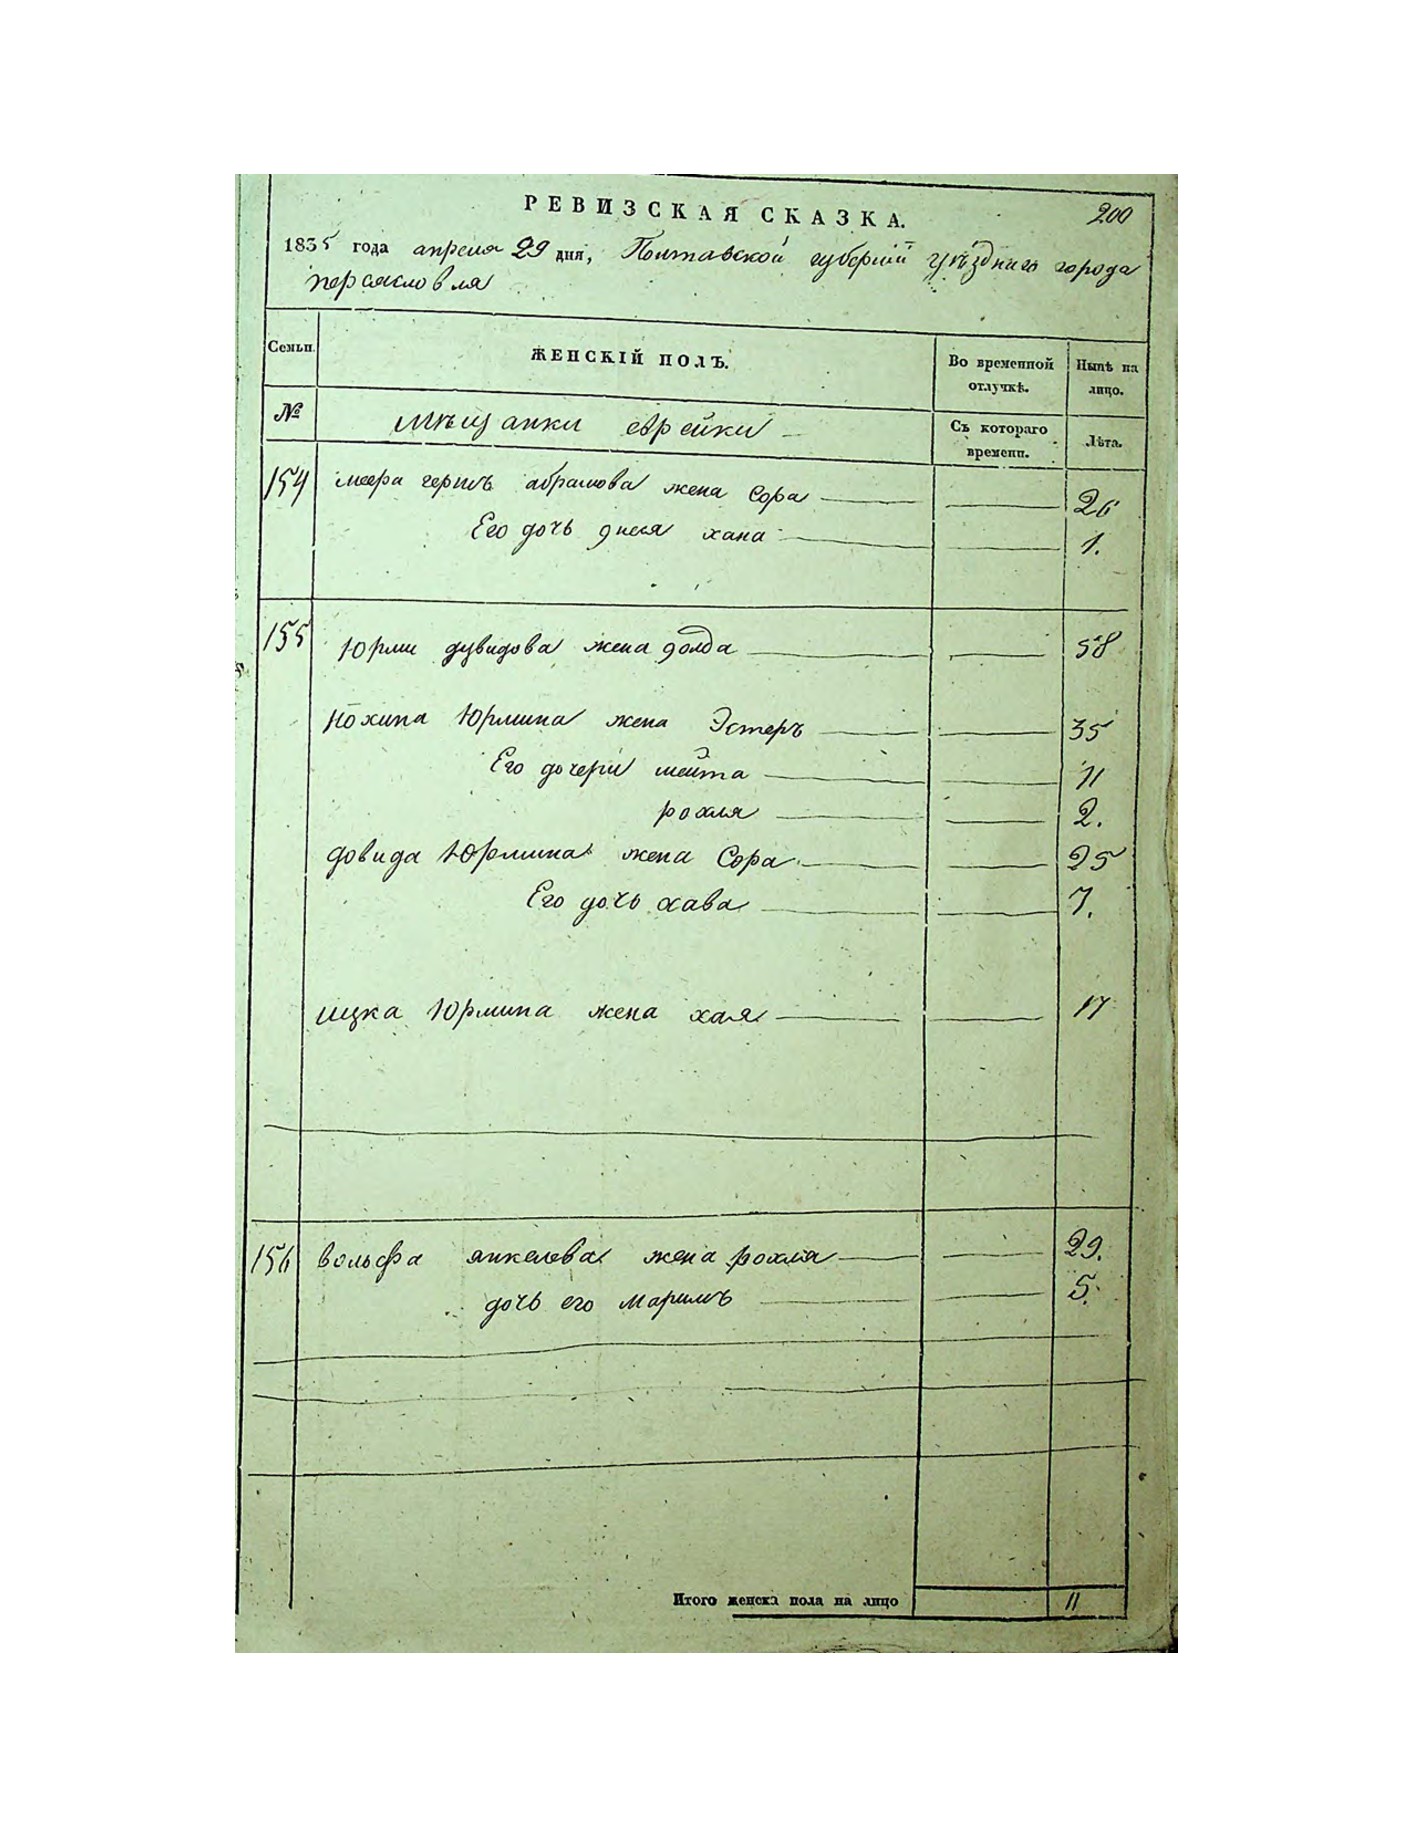 РЕВИЗСКАЯ СКАЗКА.
200
1835 года апреля 29 дня, Полтавской губерніи уѣзднаго города
переяславля
Семьи.
ЖЕНСКІЙ ПОЛЪ.
Во временной отлучкѣ.
Нынѣ на лицо.
№
мѣщанки еврейки
Съ котораго времени.
Лѣта.
154 меера абрамова жена Сора 26
Его дочь хана 1.
155 Юрми дувидова жена 58
Нохима Юрмина жена Эстеръ 35
Его дочери мейта 11
рохля 2.
довида Юрмина жена Сора 25
Его дочь хава 7.
ицка Юрмина жена хая 17
156 вольфа янкелева жена рохля 29.
дочь его Маримъ 5.
Итого женска пола на лицо 11